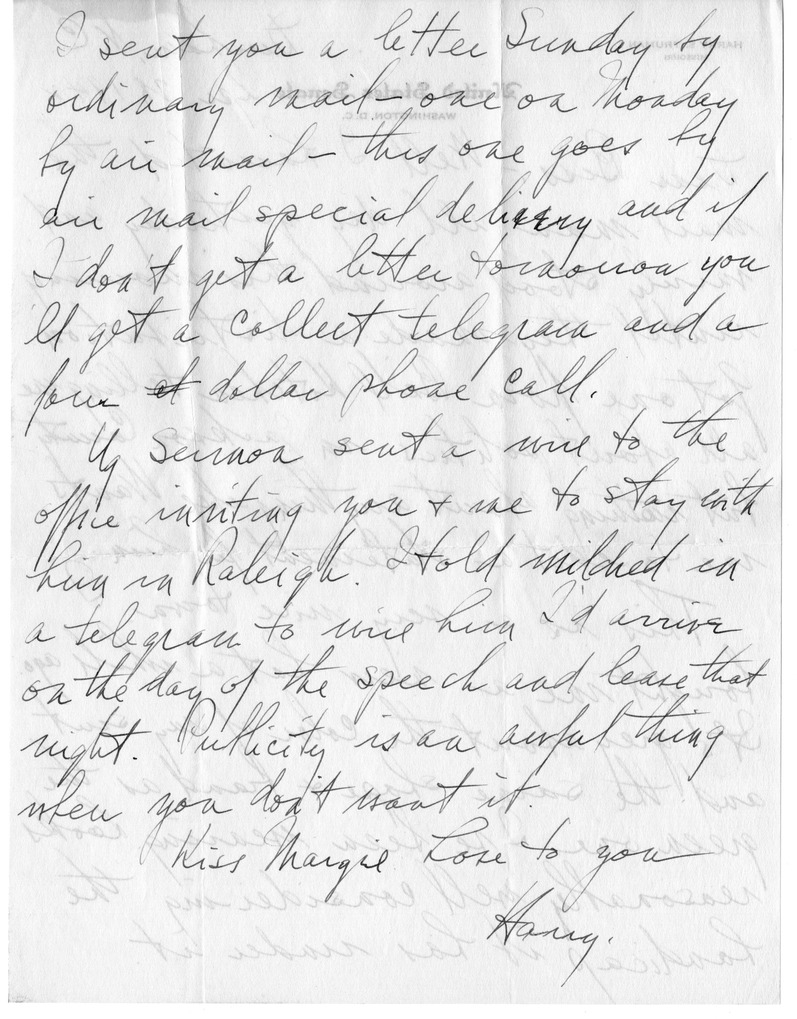 I sent you a letter Sunday by
ordinary mail - one on Monday
by air mail - this one goes by
air mail special delivery and if
I don't get a letter tomorrow you
'll get a collect telegram and a
four dollar phone call.
Sermon sent a wire to the
office inviting you + me to stay with
him in Raleigh. I told mildred in
a telegram to wire him I'd arrive
on the day of the speech and leave that
night. Publicity is an awful thing
when you don't want it.
Kiss Margie Love to you
Harry.